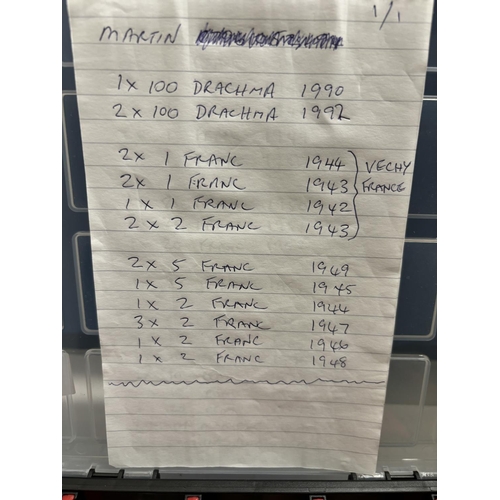 1/1
MARTIN
1 x 100 DRACHMA 1990
2 x 100 DRACHMA 1992
2 x 1 FRANC 1944 } VECHY
2 x 1 FRANC 1943 FRANCE
1 x 1 FRANC 1942
2 x 2 FRANC 1943
2 x 5 FRANC 1949
1 x 5 FRANC 1945
1 x 2 FRANC 1944
3 x 2 FRANC 1947
1 x 2 FRANC 1946
1 x 2 FRANC 1948